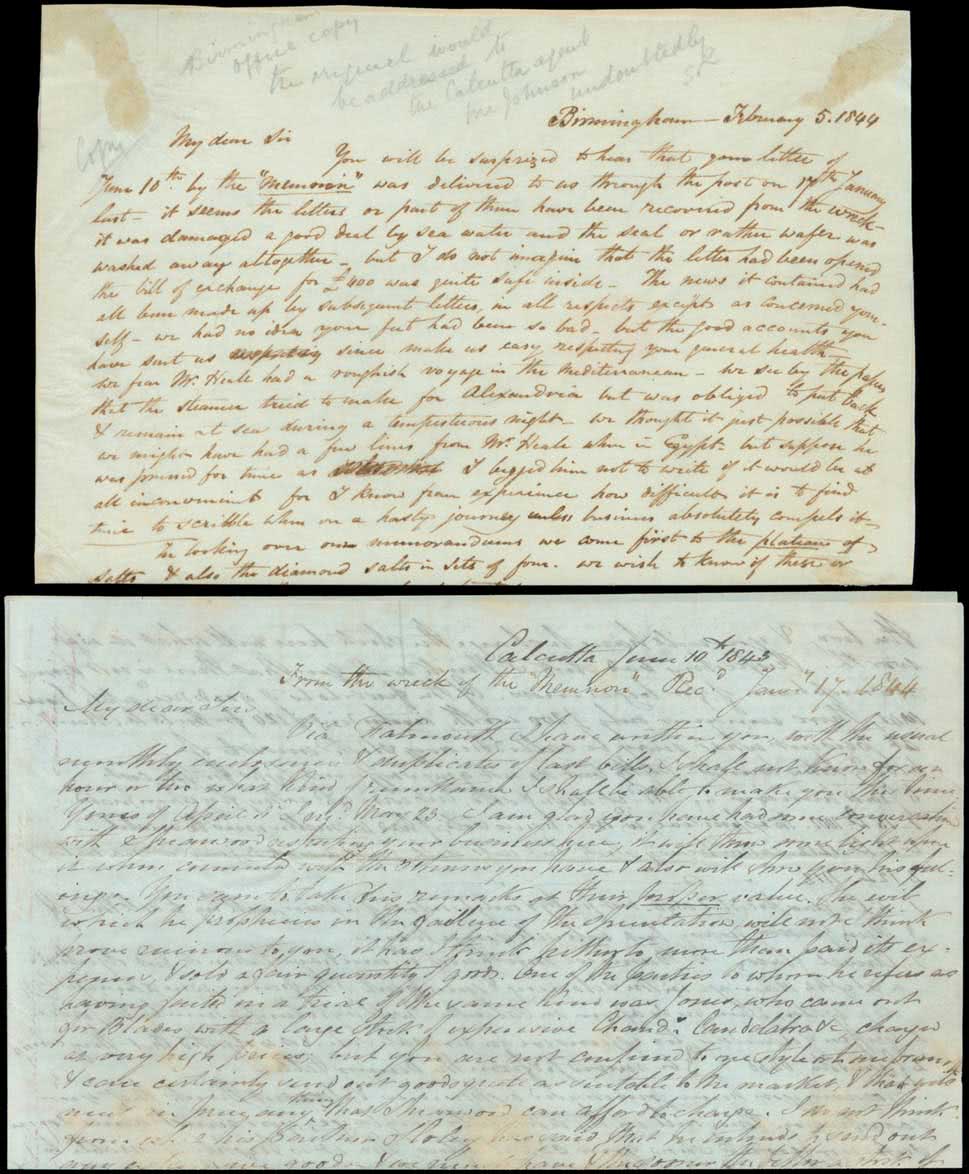 Birmingham
office copy
the original would
be addressed to
the Calcutta agent
Mr Johnson
undoubtedly
Copy
Birmingham - February 5. 1844
My dear Sir
You will be surprized to hear that your letter of
June 10th by the "Memnon" was delivered to us through the post on 17th January
last - it seems the letters or part of them have been recovered from the wreck -
it was damaged a good deal by sea water and the seal or rather wafer was
washed away altogether - but I do not imagine that the letter had been opened
the bill of exchange for £400 was quite safe inside - The news it contained had
all been made up by subsequent letters, in all respects except as concerned your-
self - we had no idea your feet had been so bad - but the good accounts you
have sent us since make us easy respecting your general health -
We fear Mr. Heale had a roughish voyage in the Mediterranean - we see by the papers
that the steamer tried to make for Alexandria but was obliged to put back
& remain at sea during a tempestuous night - we thought it just possible that
we might have had a few lines from Mr. Heale when in Egypt - but suppose he
was pressed for time as I begged him not to write if it would be at
all inconvenient for I know from experience how difficult it is to find
time to scribble when on a hasty journey unless business absolutely compels it -
In looking over our memorandums we come first to the plateau of
salts & also the diamond salts in sets of four. we wish to know if these or
Calcutta June 10th 1843
From the wreck of the "Memnon" Recd Janry 17. 1844
My dear Sir
Via Falmouth I have written you, with the usual
monthly enclosures & duplicates of last bills. I shall not know for an
hour or two what kind of remittance I shall be able to make you this time
Yours of April is May 23. I am glad you have had some conversation
with Shearwood respecting your business here, it will throw some light upon
it when connected with the returns you have & also will show you his feel-
ings. You can take his remarks at their proper value. The evil
which he prophecies on the of the speculation will not I think
prove ruinous to you, it has I think hitherto more than paid its ex-
penses, & sold a fair quantity of goods. One of the parties to whom he refers as
having failed in a trial of the same kind was Jones, who came out
for Blades with a large stock of expensive Chandrs Candelabra &c, charged
at very high prices, but you are not confined to one style or to one
& can certainly send out goods quite as suitable to the market, & that
anything that Shearwood can afford to charge. I do not think
his said that he intends to send out